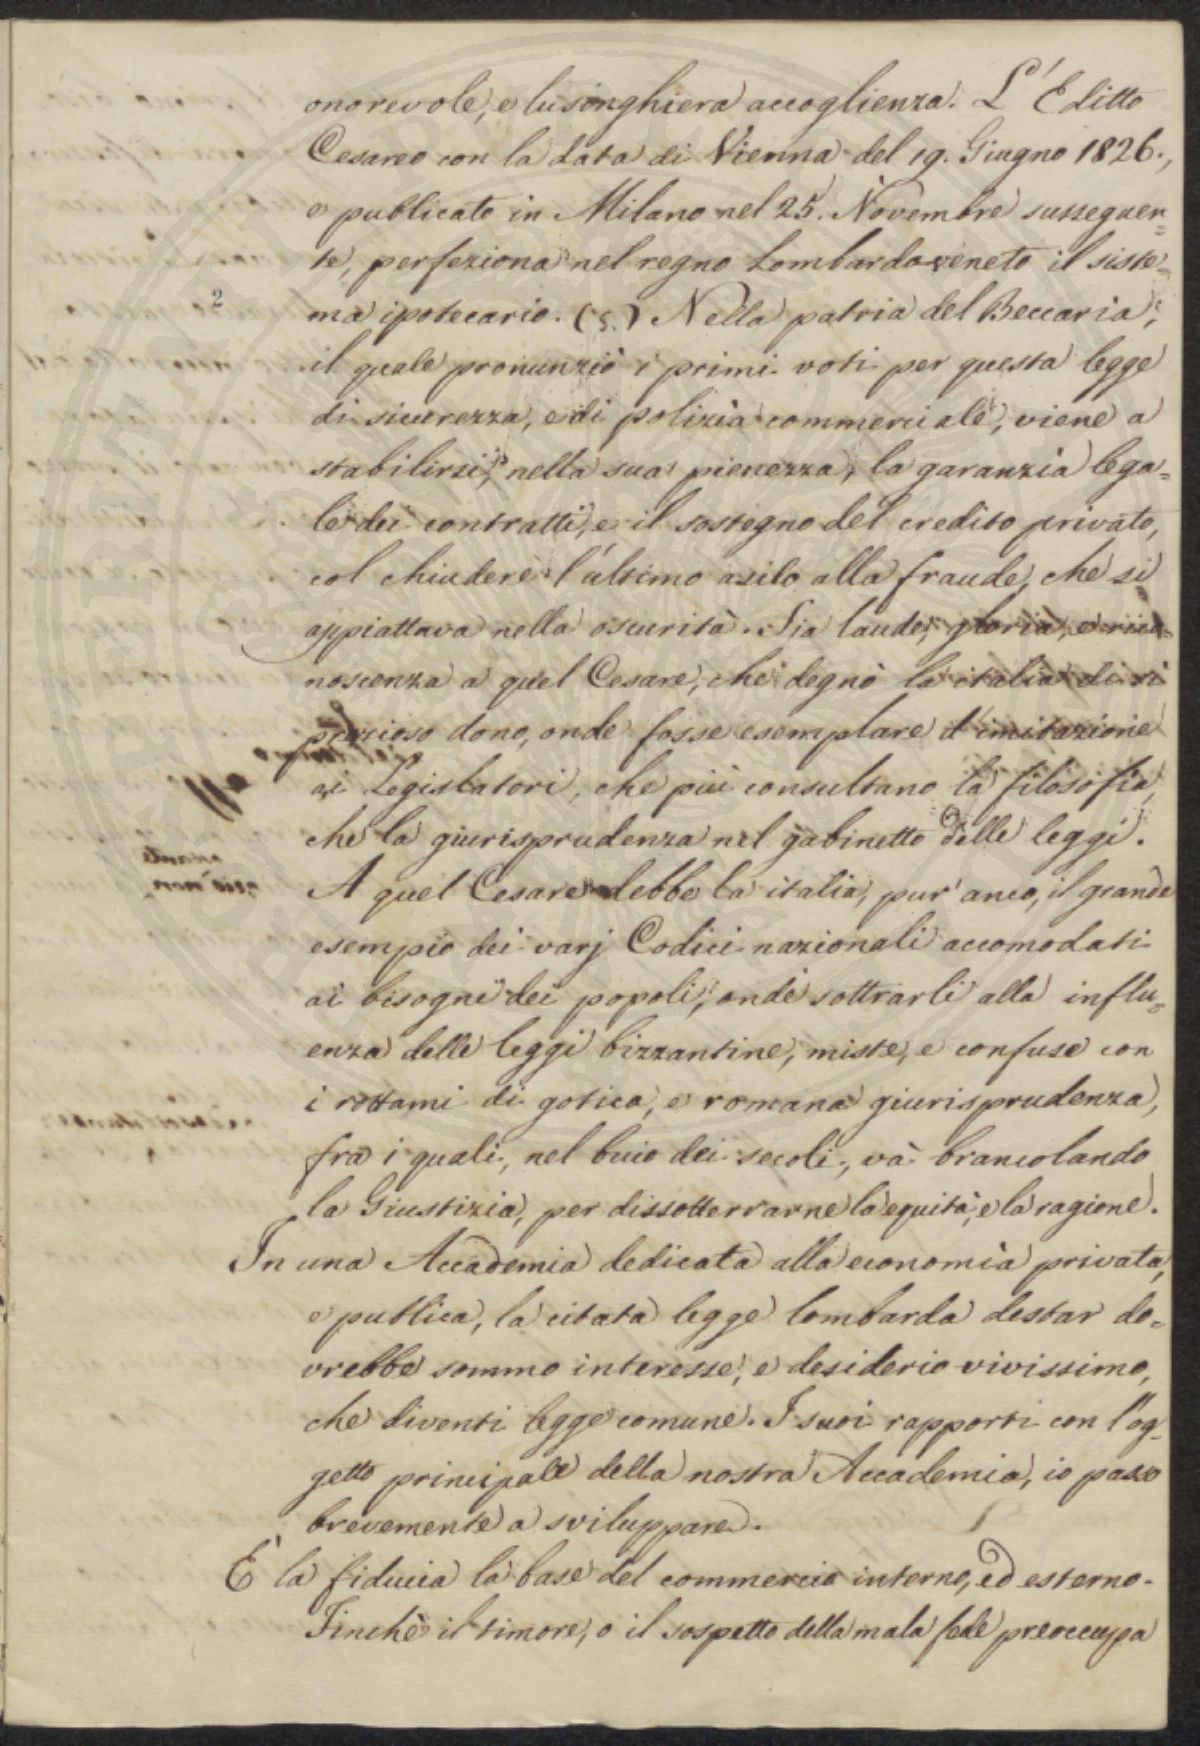 onorevole, e lusinghiera accoglienza. L'Editto
Cesareo con la data di Vienna del 19. Giugno 1826.,
e publicato in Milano nel 25. Novembre susseguen=
te, perfeziona nel regno Lombardoveneto il siste=
2
ma ipotecario. (5.) Nella patria del Beccaria,
il quale pronunziò i primi voti per questa legge
di sicurezza, e di polizia commerciale, viene a
stabilirsi, nella sua pienezza, la garanzia lega=
le dei contratti, e il sostegno del credito privato,
col chiudere l'ultimo asilo alla fraude, che si
appiattava nella oscurità. Sia laude, gloria, e rico=
noscenza a quel Cesare, che degnò la italia di sì
prezioso dono, onde fosse esemplare d'imitazione
ai Legislatori, che più consultano la filosofia,
che la giurisprudenza nel gabinetto delle leggi.
A quel Cesare debbe la italia, pur' anco, il grande
esempio dei varj Codici nazionali accomodati
ai bisogni dei popoli, onde sottrarli alla influ=
enza delle leggi bizzantine, miste, e confuse con
i rottami di gotica, e romana giurisprudenza,
fra i quali, nel buio dei secoli, và brancolando
la Giustizia, per dissotterrarne la equità, e la ragione.
In una Accademia dedicata alla economia privata,
e publica, la citata legge lombarda destar do=
vrebbe sommo interesse, e desiderio vivissimo,
che diventi legge comune. I suoi rapporti con l'og=
getto principale della nostra Accademia, io passo
brevemente a sviluppare.
È la fiducia la base del commercio interno, ed esterno.
Finchè il timore, o il sospetto della mala fede preoccupa